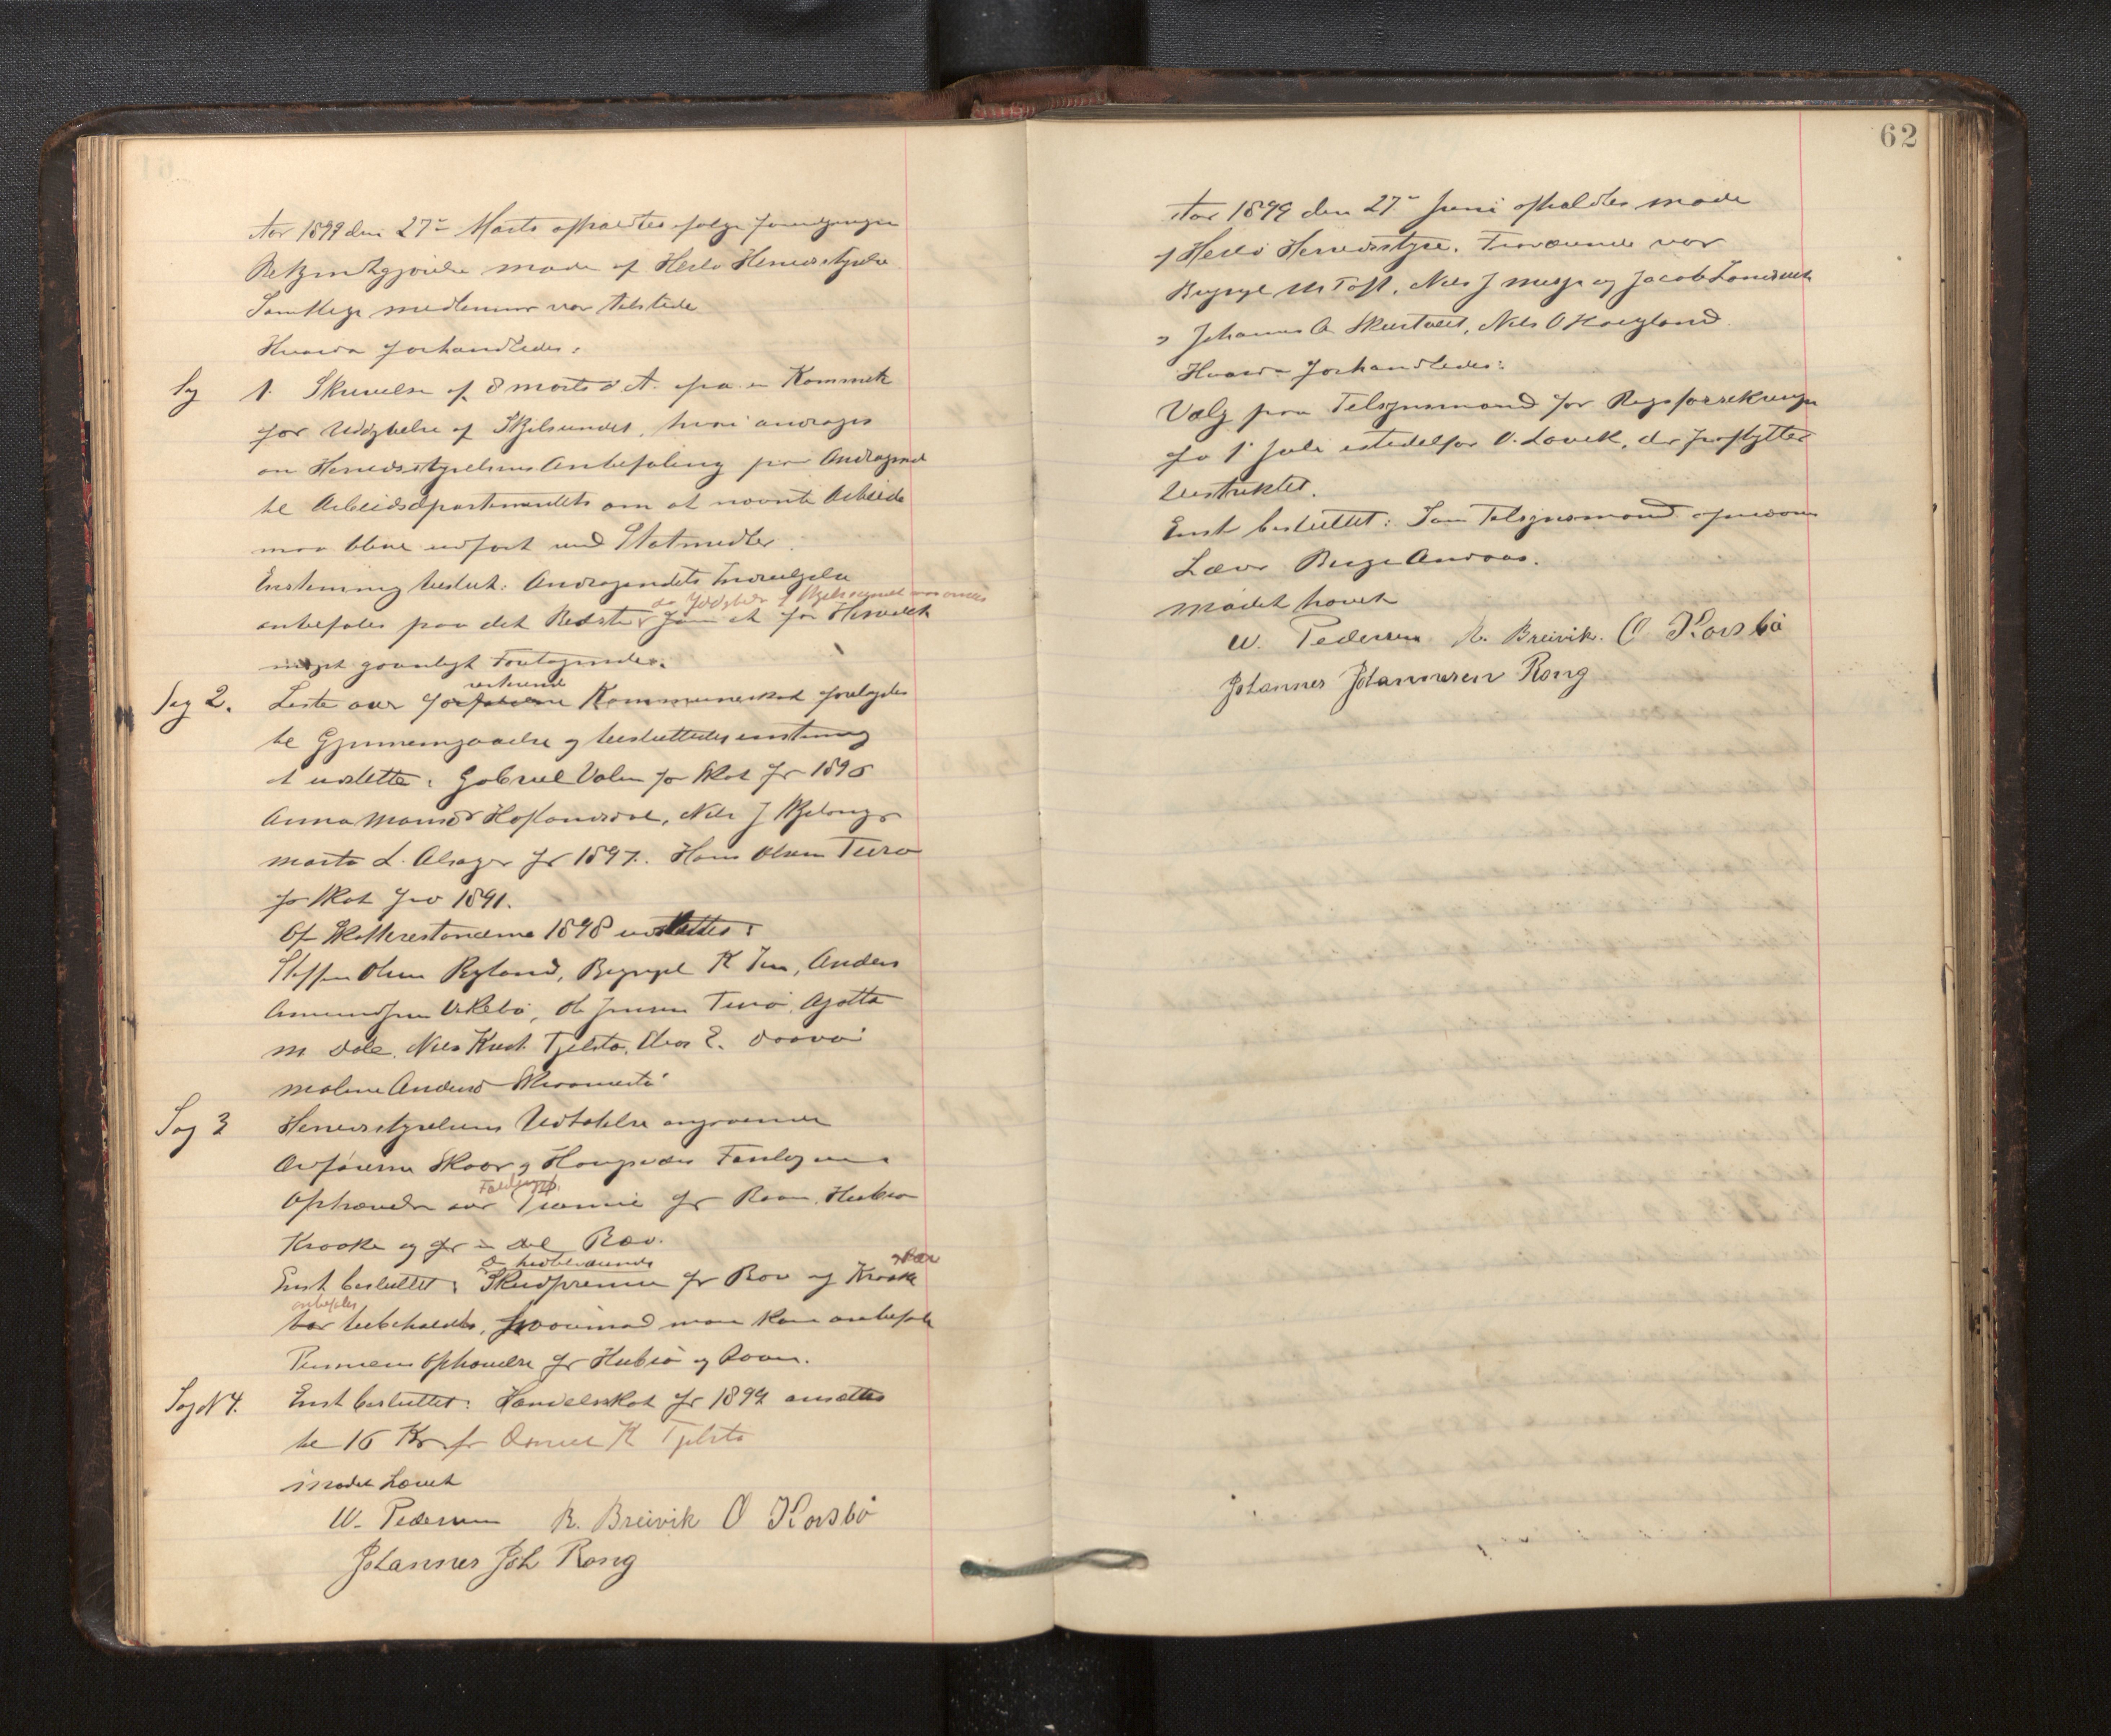 62
Aar 1899 den 27de Marts afholdtes ifølge foregaaende
Bekjendtgjørelse møde af Herlø Herredsstyrelse
Samtlige medlemmer var tilstede
Hvorda forhandledes:
Sag 1. Skrivelse af 8 marts d A. fra en Kommite
for Uddybelse af Skjelsundet, hvori andrages
om Herredsstyrelsens Anbefaling paa Andragende
til Arbeidsdepartementet om at nævnte Arbeide
maa blive udført med Statsmidler.
Enstemmig besluttet: Andragendets Indvilgelse
anbefales paa det Bedste som et for Herredet
meget gavnligt Foretagende.
Sag 2. Liste over resterende Kommuneskat forelagdes
til Gjennemgaaelse og besluttedes enstemmig
at udslette: Gabriel Valen for Skat for 1896
Anna Monsd Haflandsdal, Nils J Skjelanger
Marta L. Alsager for 1897. Hans Olsen Turø
for Skat for 1891.
Af Skatterestancerne 1898 udslettes:
Steffen Olsen Ryland, Brynjel K , Anders
Amundsen Vikebø, Ole Jensen Turø, Agatta
M Dale, Nils Knut Tjelsto, Elias E.
Maline Andersd
Sag 3 Herredsstyrelsens Udtalelse angaaende
Ophævelse av Præmie for Ravn, Hubro
Krake og for en del Ræv.
Enst besluttet: Skudpremie for Ræv og Krake
anbefales
bør bibeholdes, hvorimod man kan anbefale
Premiens Ophævelse for Hubro og Ravn.
Sag N 4. Enst besluttet: Handelsskat for 1899 ansættes
til 16 Kr for K Tjelsto
Mødet hævet
W. Pedersen R. Breivik O Korsbø
Johannes Joh Rong
Aar 1899 den 27de Juni afholdtes møde
af Herlø Herredsstyre. Fraværende var
Brynjel M Toft, Nils J Misje og Jacob Landsvik
Johannes A Skurtveit, Nils O Haugland
Hvorda forhandledes:
Valg paa Tilsynsmand for Rigsforsikringen
fra 1 Juli istedetfor O. Lavik, der fraflytter
Distriktet.
Enst besluttet: Som Tilsynsmand opnævnes
Lærer Berge Andraas.
Mødet hævet
W. Pedersen R. Breivik. O Korsbø
Johannes Johannesen Rong